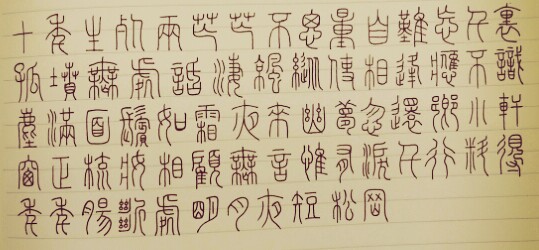 十年生死兩茫茫不思量自難忘千裏
孤墳無處話淒涼縱使相逢應不識
塵滿面鬢如霜夜來幽夢忽還鄉小軒
窗正梳妝相顧無言惟有淚千行料得
年年腸斷處明月夜短松岡